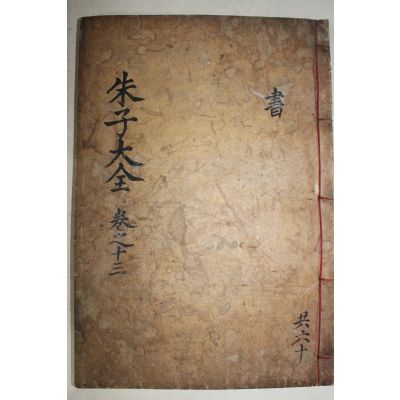 書
朱子大全 卷之十三
共六十